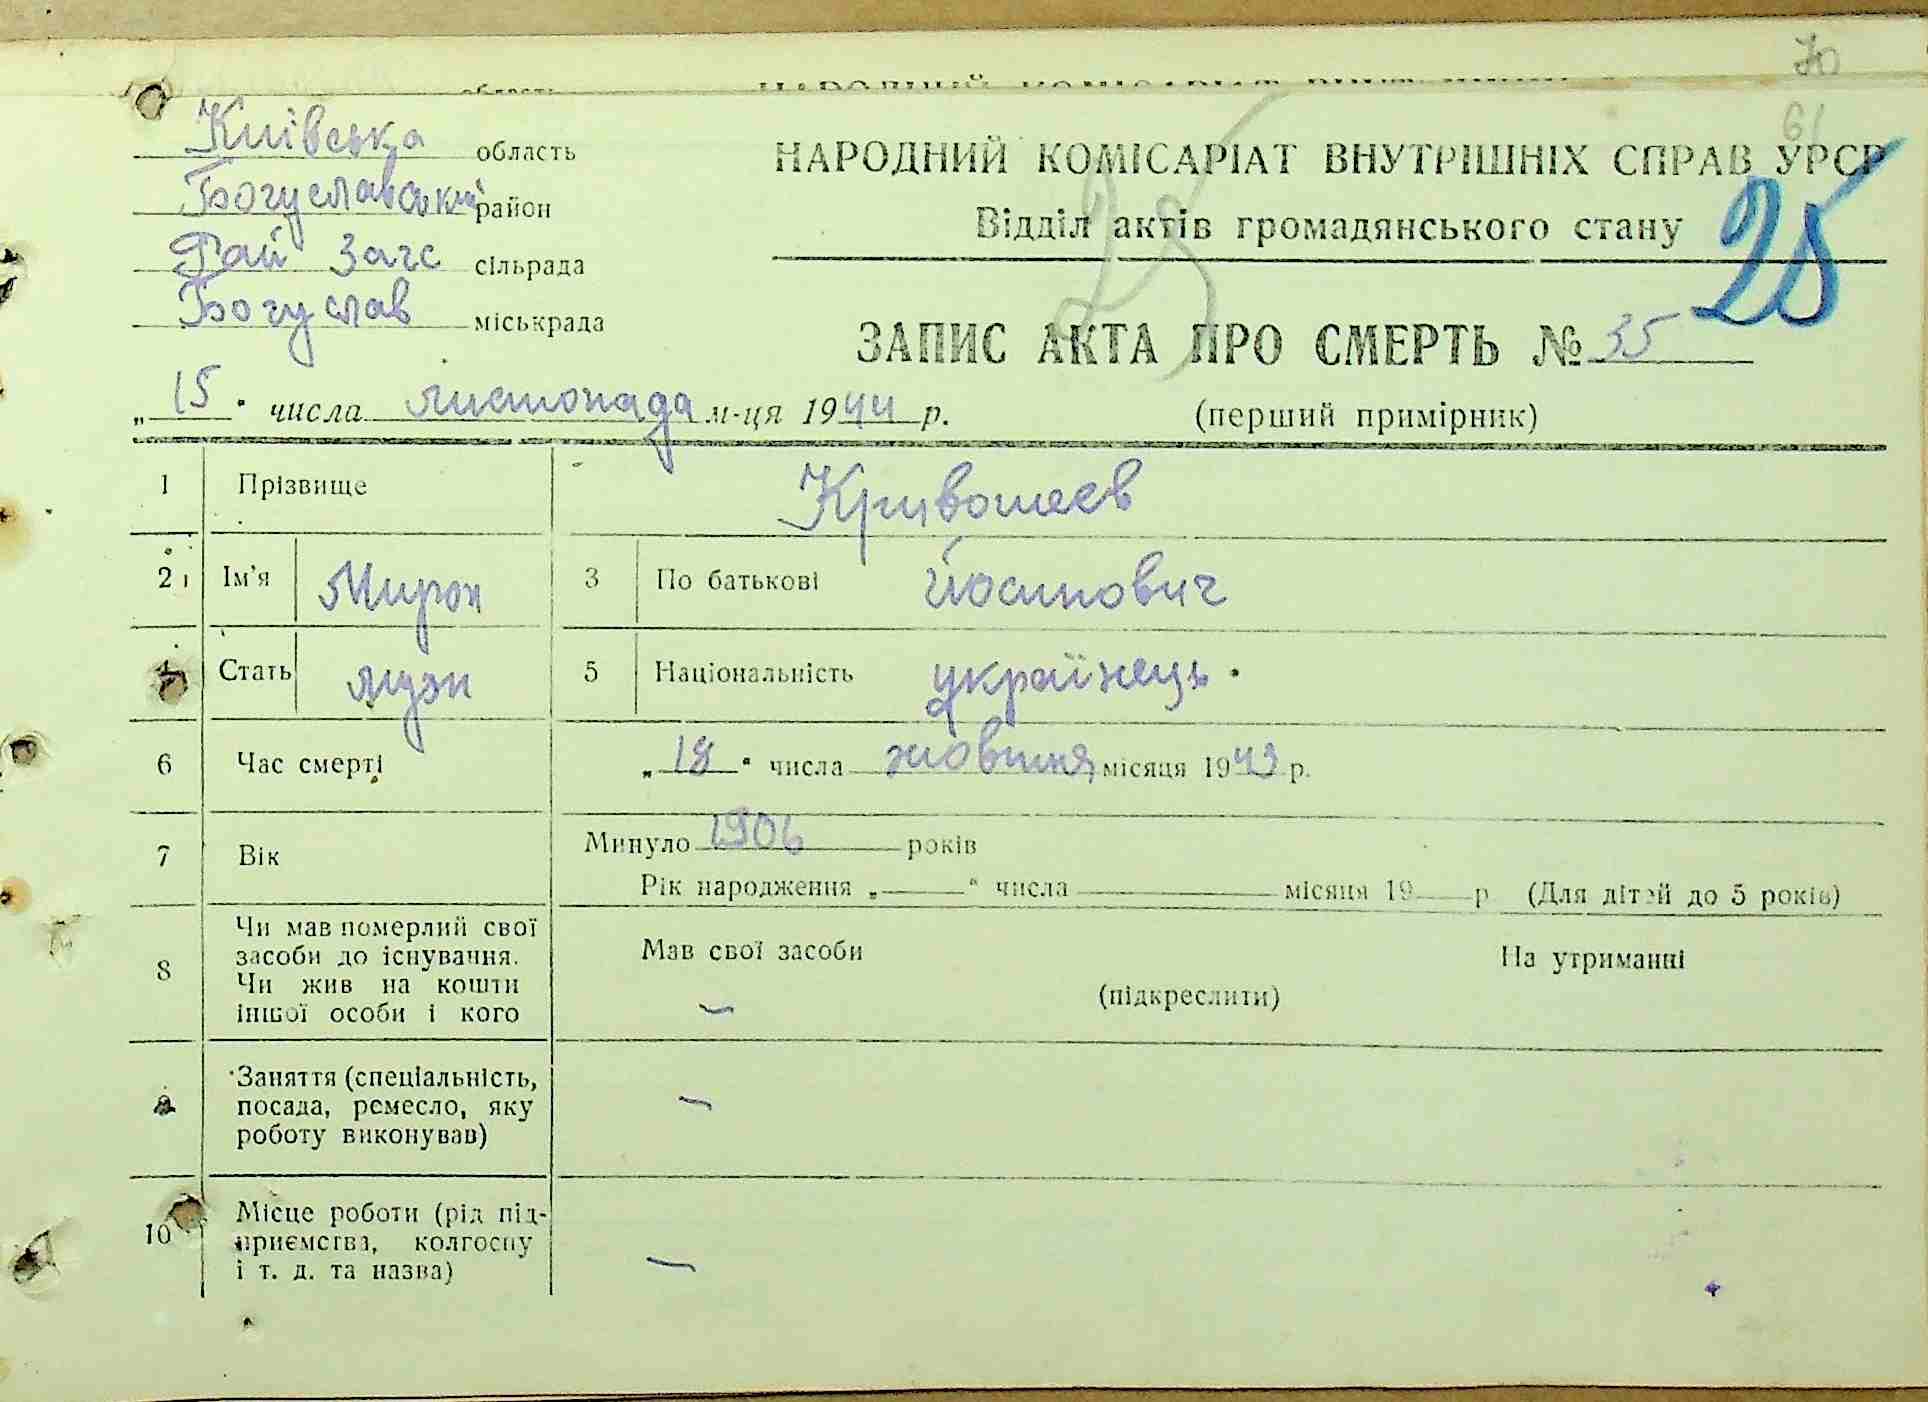 70
61
Київська область
Богуславський район
Рай Загс сільрада
Богуслав міськрада
НАРОДНИЙ КОМІСАРІАТ ВНУТРІШНІХ СПРАВ УРСР
Відділ актів громадянського стану
25
25
ЗАПИС АКТА ПРО СМЕРТЬ № 35
„15“ числа листопада м-ця 1944 р.
(перший примірник)
1 Прізвище Кривошеєв
2 Ім'я Мирон 3 По батькові Йосипович
4 Стать муж 5 Національність українець.
6 Час смерті „18“ числа жовтня місяця 1943 р.
7 Вік Минуло 1906 років
Рік народження „ “ числа місяця 19 р (Для дітей до 5 років)
8 Чи мав померлий свої
засоби до існування.
Чи жив на кошти
іншої особи і кого
Мав свої засоби
На утриманні
(підкреслити)
–
9 Заняття (спеціальність,
посада, ремесло, яку
роботу виконував)
–
10 Місце роботи (рід під-
приємства, колгоспу
і т. д. та назва)
–